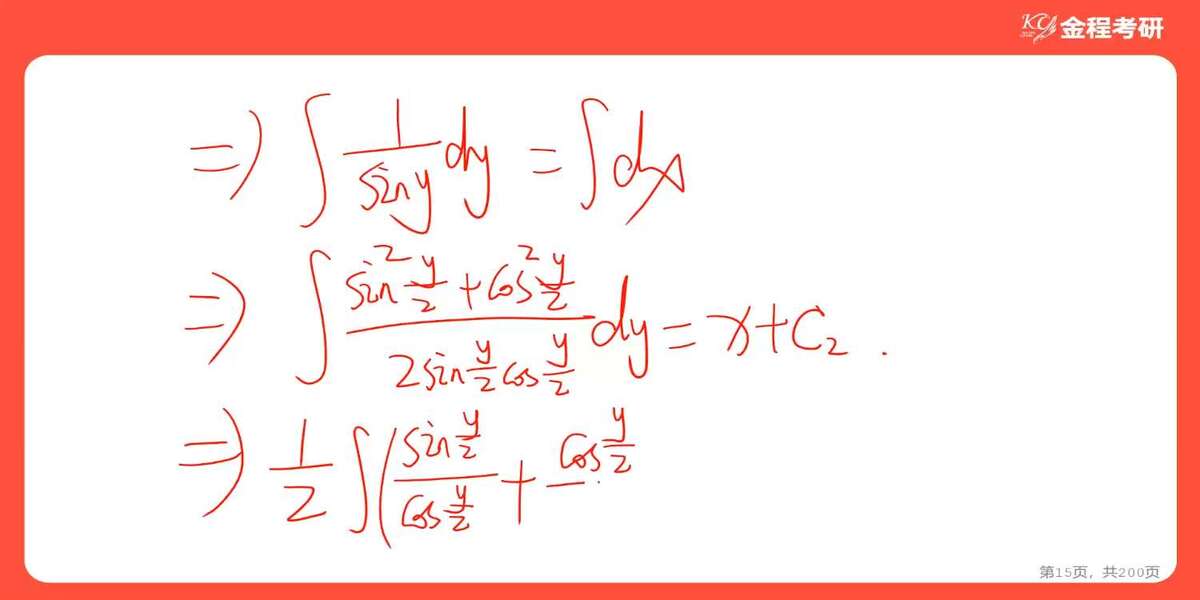 KY 金程考研
⇒ ∫ 1/(sin y) dy = ∫ dx
⇒ ∫ (sin² y/2 + cos² y/2)/(2 sin y/2 cos y/2) dy = x + C₂ .
⇒ 1/2 ∫ ( (sin y/2)/(cos y/2) + cos y/2
第15页, 共200页